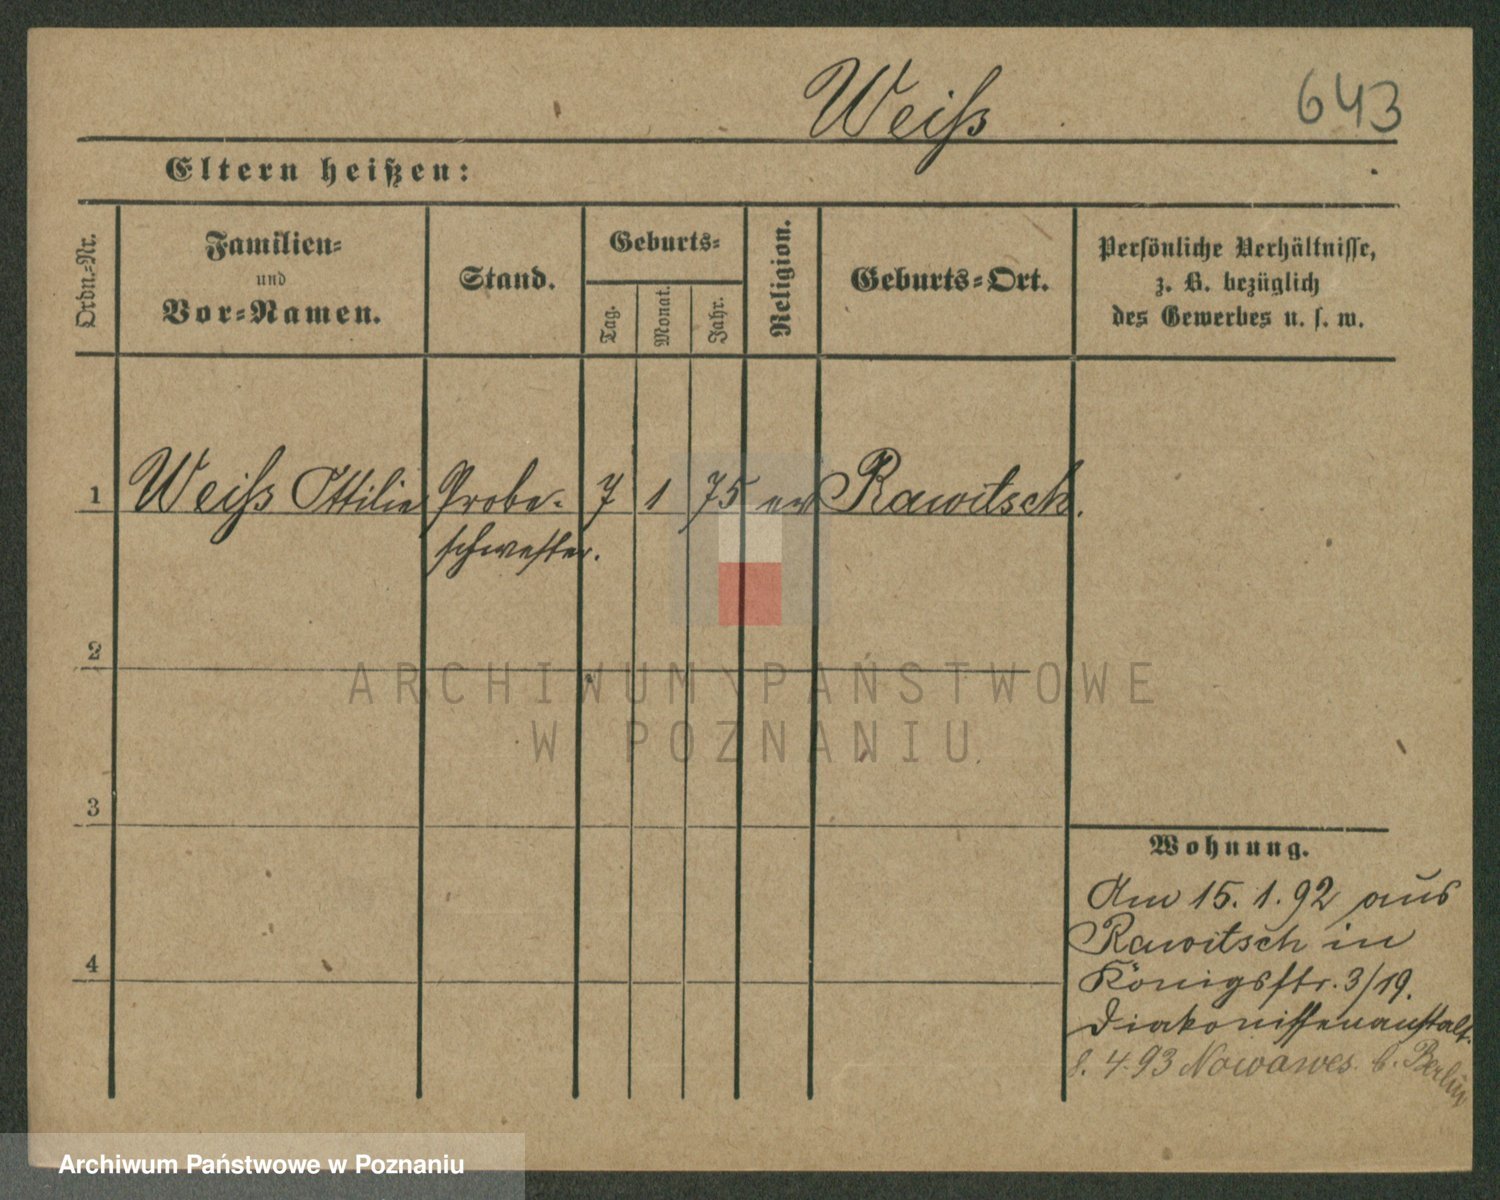 Weiß
643
Eltern heißen:
Ordn.-Nr.
Familien-
und
Vor-Namen.
Stand.
Geburts-
Tag.
Monat.
Jahr.
Religion.
Geburts-Ort.
Persönliche Verhältnisse,
z. B. bezüglich
des Gewerbes u. s. w.
1 Weiß Ottilie Probe- 7 1 75 ev Rawitsch.
schwester.
2
3
4
Wohnung.
Am 15. 1. 92 aus
Rawitsch in
Königsstr. 3/19.
Diakonissenanstalt.
8. 4. 93 Nowawes b. Berlin
ARCHIWUM PAŃSTWOWE
W POZNANIU
Archiwum Państwowe w Poznaniu